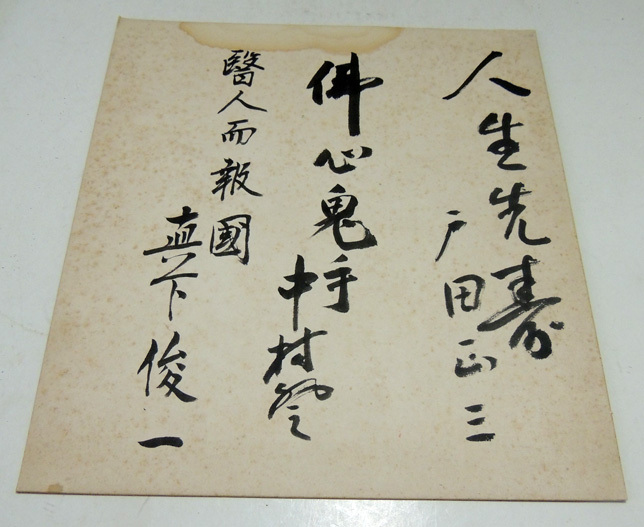 人生先寿
戸田正三
佛心鬼手
中村
醫人而報國
真下俊一